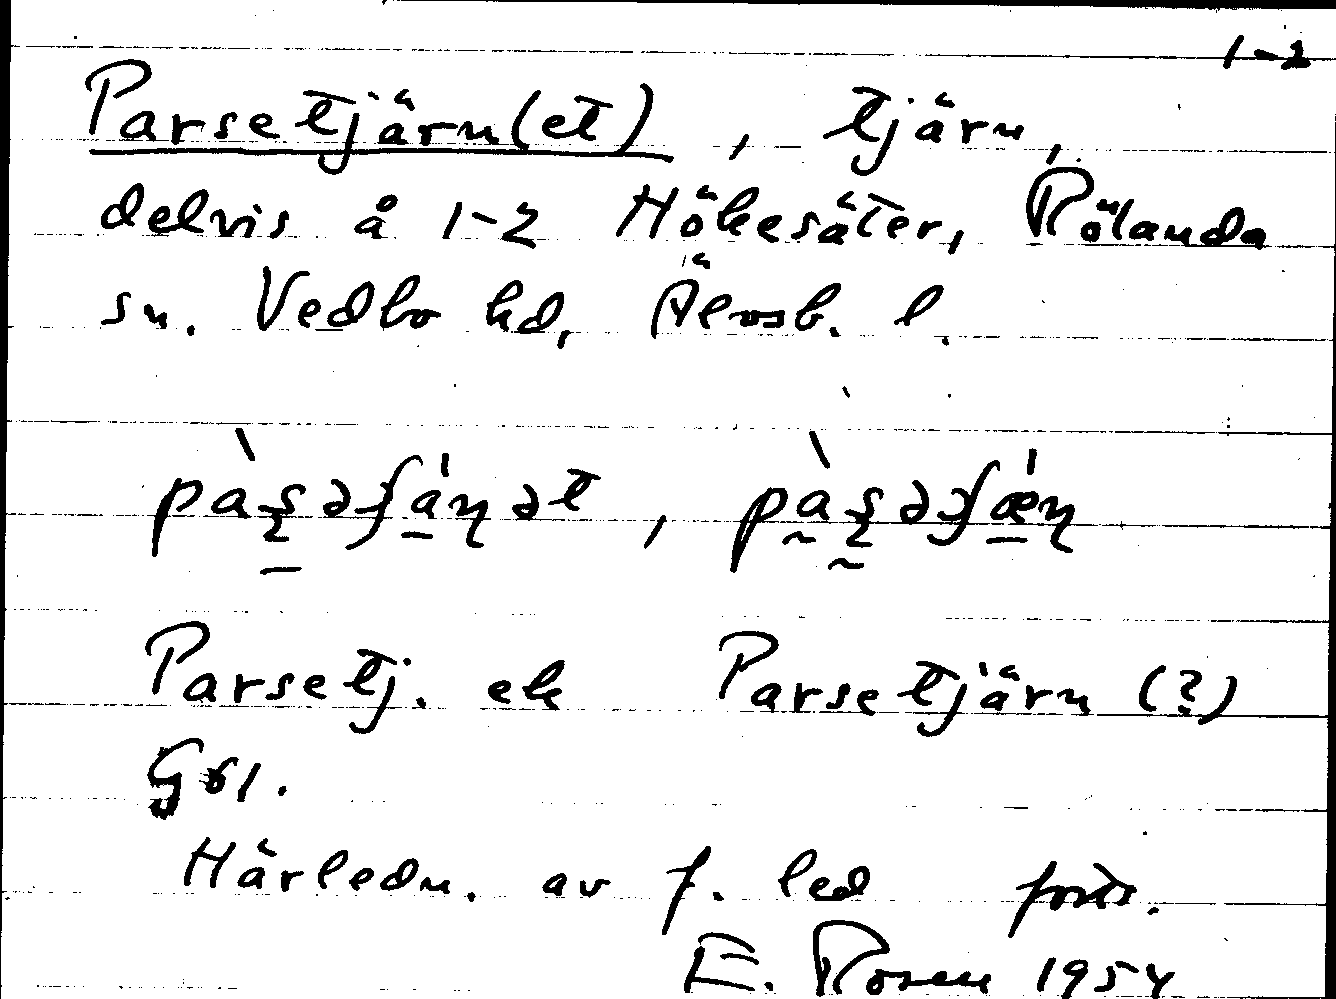 1-2
Parsetjärn(et), tjärn,
delvis å 1-2 Hökesäter, Rölanda
sn. Vedbo hd, Älvsb. l.
pàʂəʃáɳət, pàʂəʃǽɳ
Parsetj. ek Parsetjärn (?)
Härledn. av f. led forts.
E. Rosen 1954